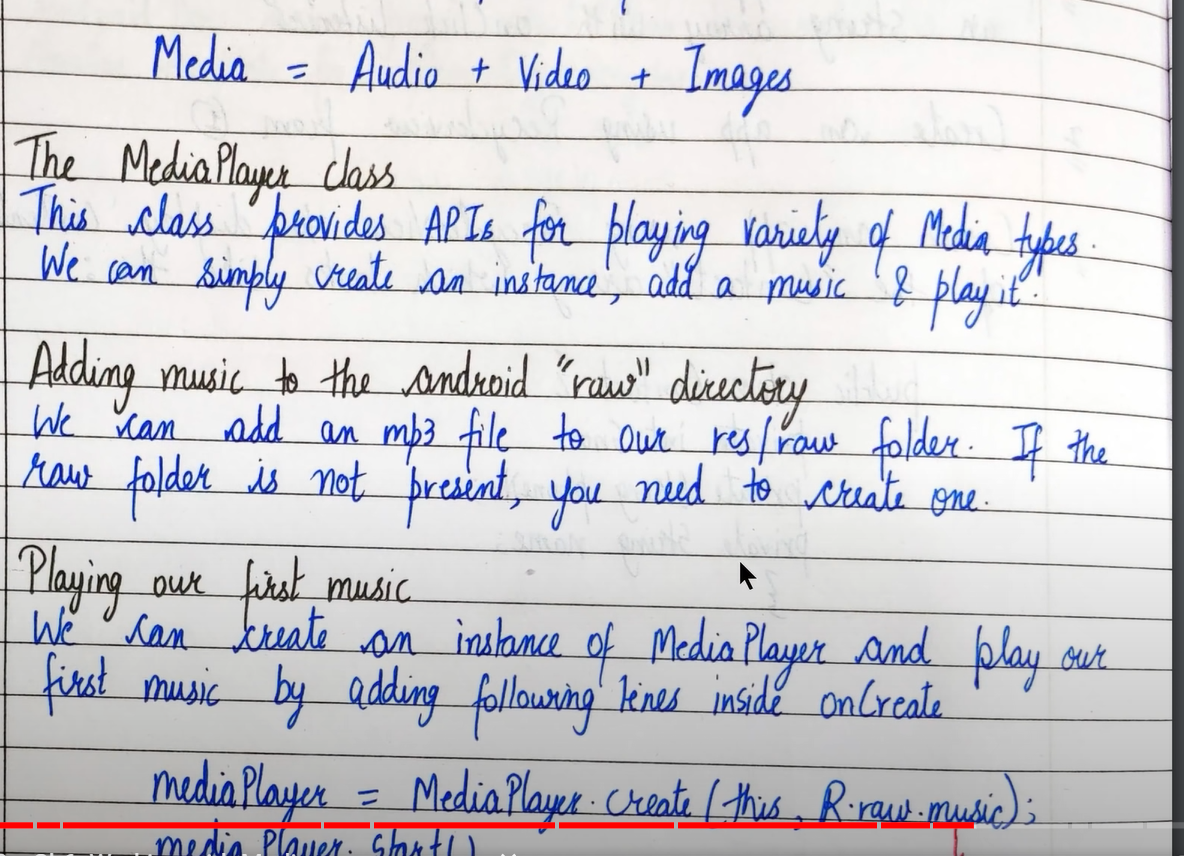 Media = Audio + Video + Images
The MediaPlayer class
This class provides APIs for playing variety of Media types.
We can simply create an instance, add a music & play it.
Adding music to the android "raw" directory
We can add an mp3 file to our res/raw folder. If the
raw folder is not present, you need to create one.
Playing our first music
We can create an instance of MediaPlayer and play our
first music by adding following lines inside onCreate
mediaPlayer = MediaPlayer.create(this, R.raw.music);
mediaPlayer.start()